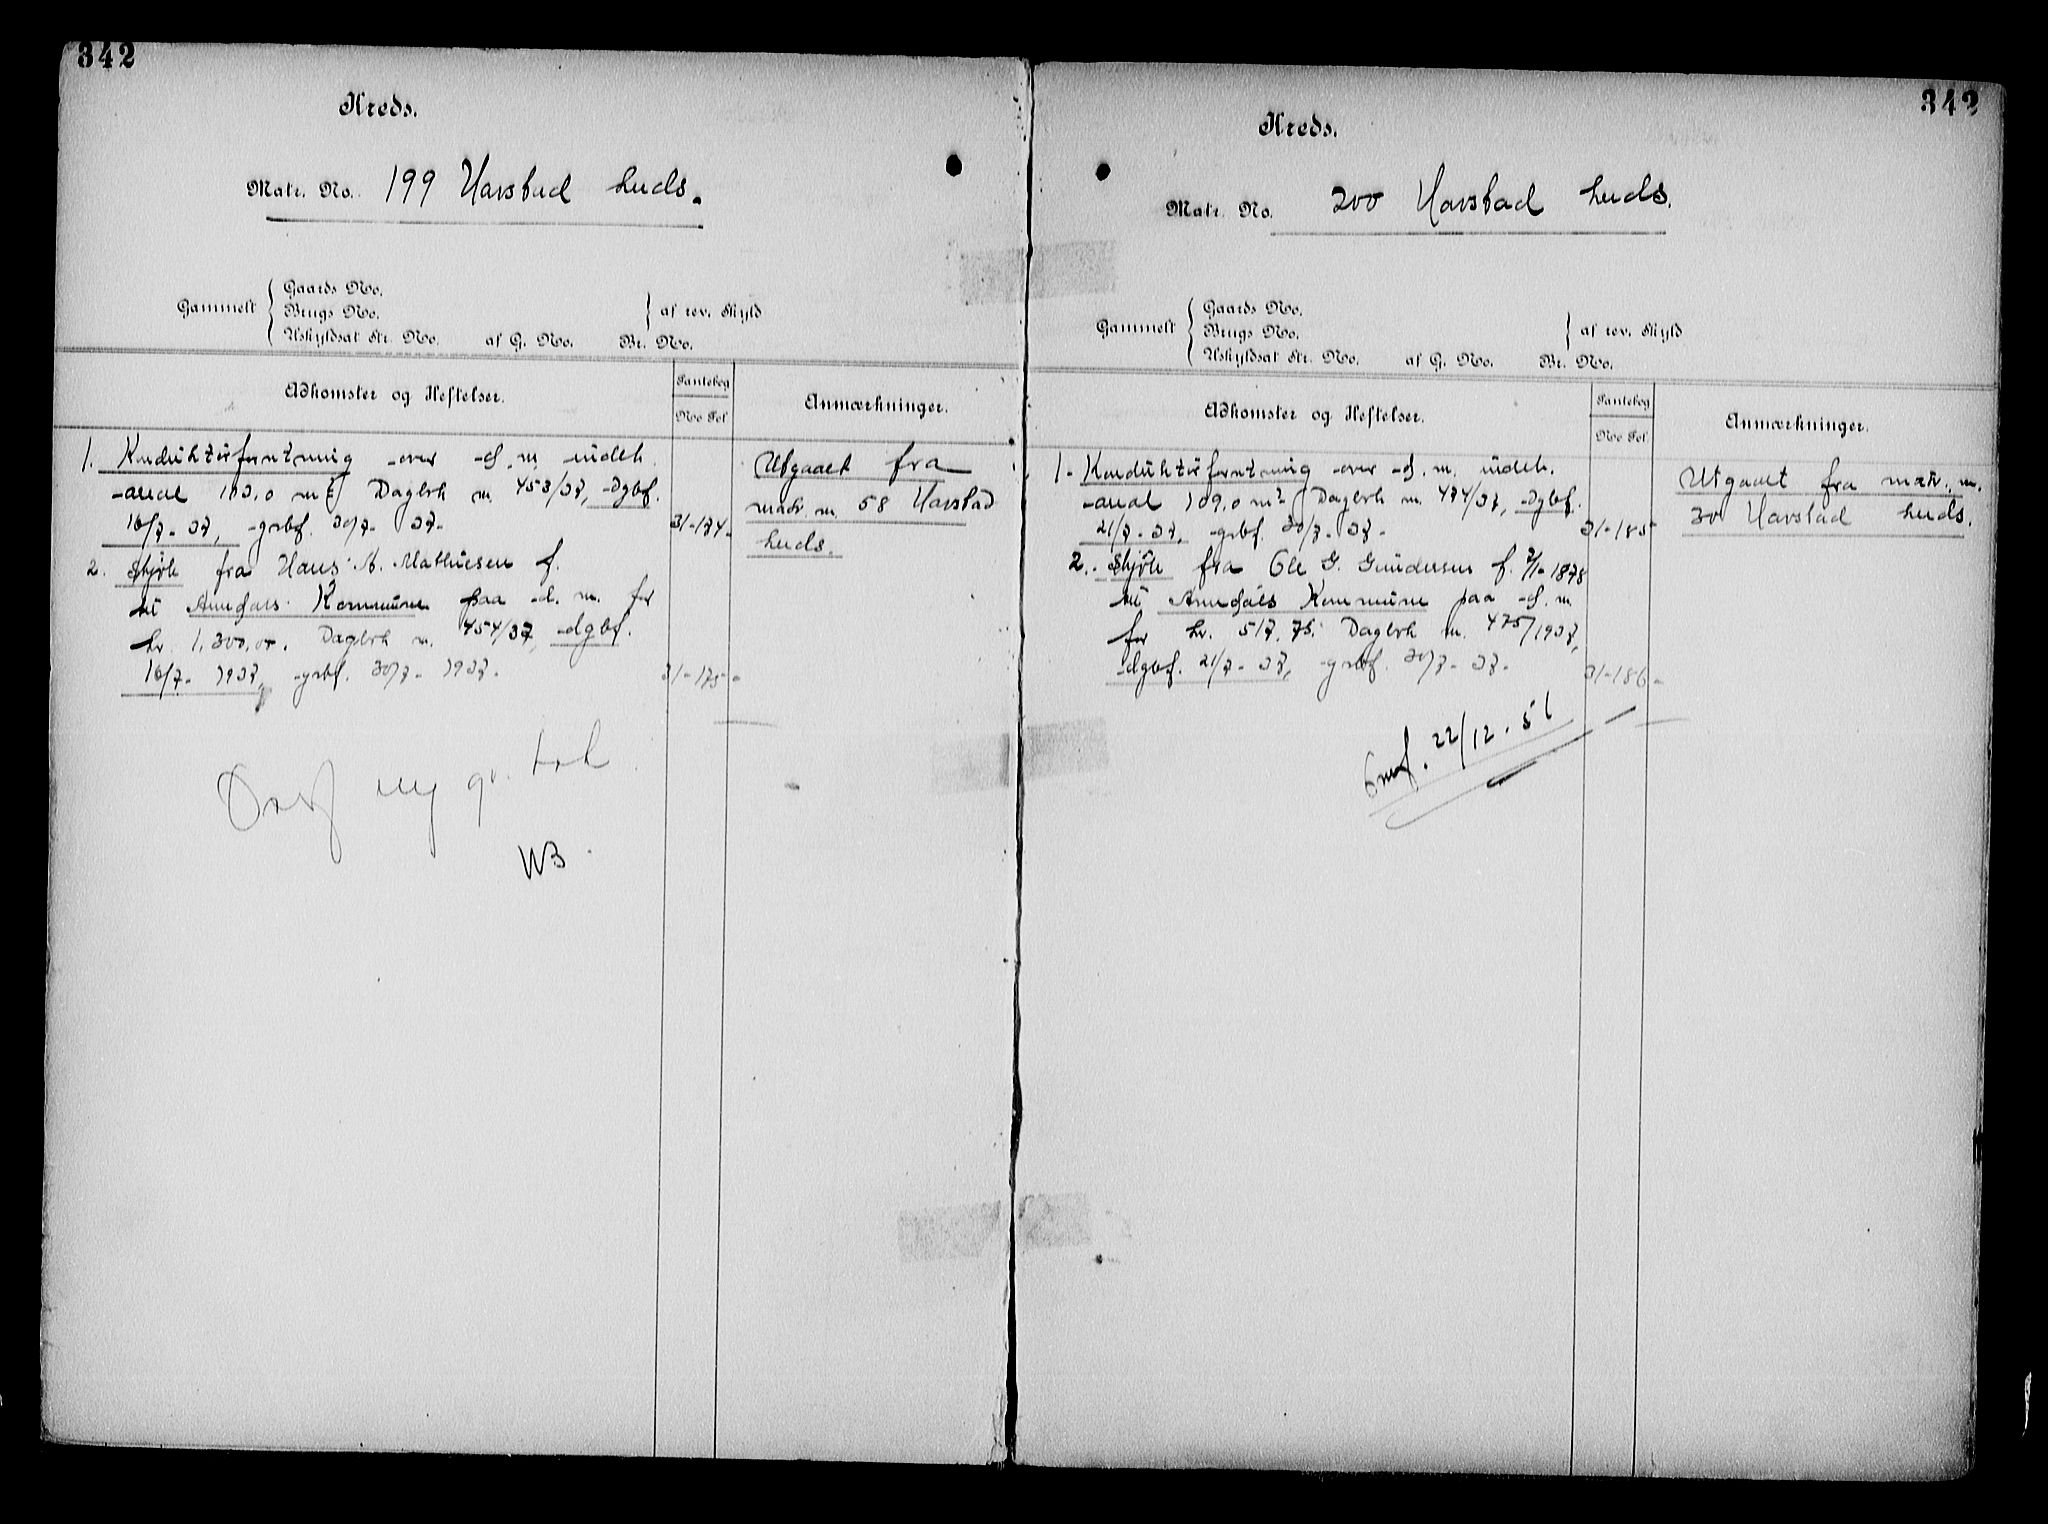 342
Kreds.
Matr. No. 199 Havstad luds.
Gammelt
Gaards No.
Brugs No.
Uskyldsat Str. No. af G. No. Br. No.
af rev. Skyld
Adkomster og Heftelser.
Pantebog
No Fol.
Anmærkninger.
1. Konduktörforretning over d. m. indeh.
areal m² Dagbok nr. 453/37, dgbf.
16/7-37, grbf. 30/7-37. 31-174-
2. Skjöte fra Hans A. Mathiesen f.
til Arendals Kommune paa d. m. for
kr. 1,300,00. Dagbok nr. 454/37, dgbf.
16/7-1937, grbf. 30/7-1937. 31-175-
Utgaaet fra
matr. nr. 58 Havstad
luds.
Overf ny gr. bok
WB
342
Kreds.
Matr. No. 200 Havstad luds.
Gammelt
Gaards No.
Brugs No.
Uskyldsat Str. No. af G. No. Br. No.
af rev. Skyld
Adkomster og Heftelser.
Pantebog
No Fol.
Anmærkninger.
1. Konduktörforretning over d. m. indeh.
areal 109,0 m² Dagbok nr. 474/37, dgbf.
21/7-37, grbf. 30/7-37. 31-185
2. Skjöte fra Ole G. Gundersen f. 1878
til Arendals Kommune paa d. m.
for kr. 517,75. Dagbok nr. 475/1937,
dgbf. 21/7-37, grbf. 30/7-37. 31-186-
Utgaaet fra matr. nr.
30 Havstad luds.
Omf. 22/12-51